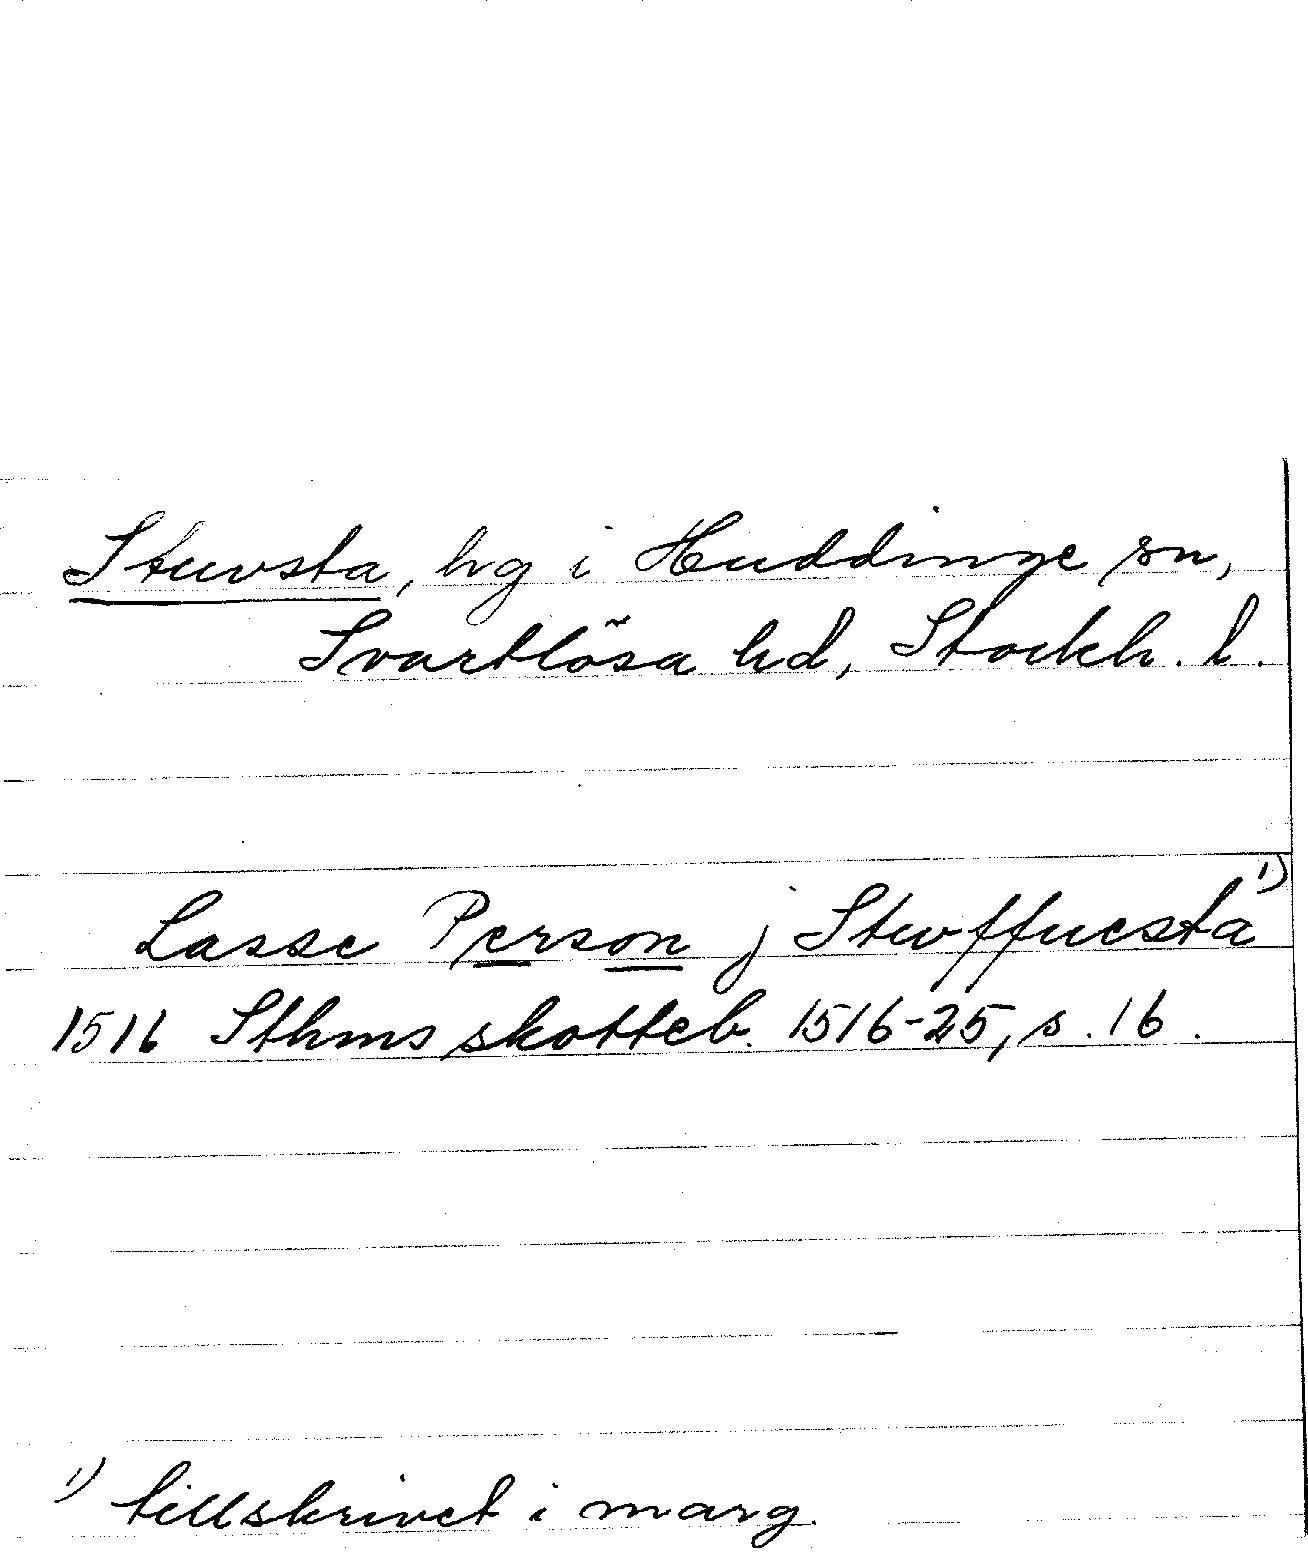 Stuvsta, hg i Huddinge sn,
Svartlösa hd, Stockh. l.
Lasse Person j Stwffuesta 1)
1516 Sthms skotteb. 1516-25, s. 16.
1) tillskrivet i marg.